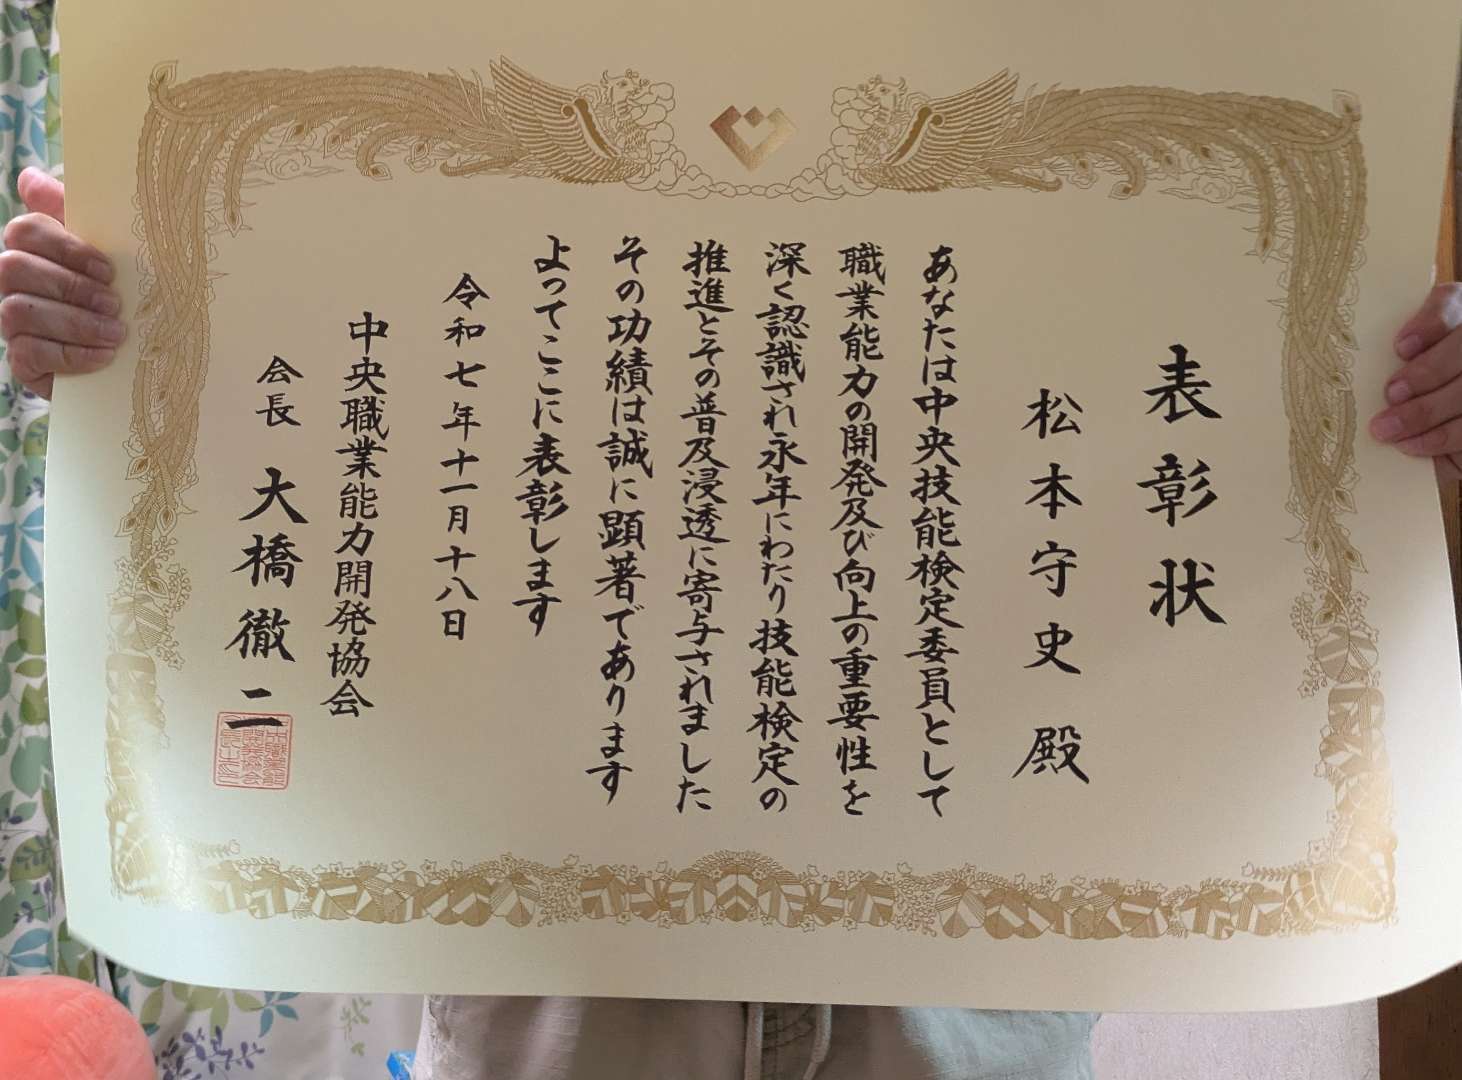 表彰状
松本守史殿
あなたは中央技能検定委員として
職業能力の開発及び向上の重要性を
深く認識され永年にわたり技能検定の
推進とその普及浸透に寄与されました
その功績は誠に顕著であります
よってここに表彰します
令和七年十一月十八日
中央職業能力開発協会
会長 大橋徹二